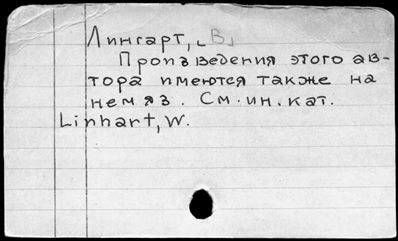 Лингарт, [В]
Произведения этого ав-
тора имеются также на
нем.яз. См.ин.кат.
Linhart, W.